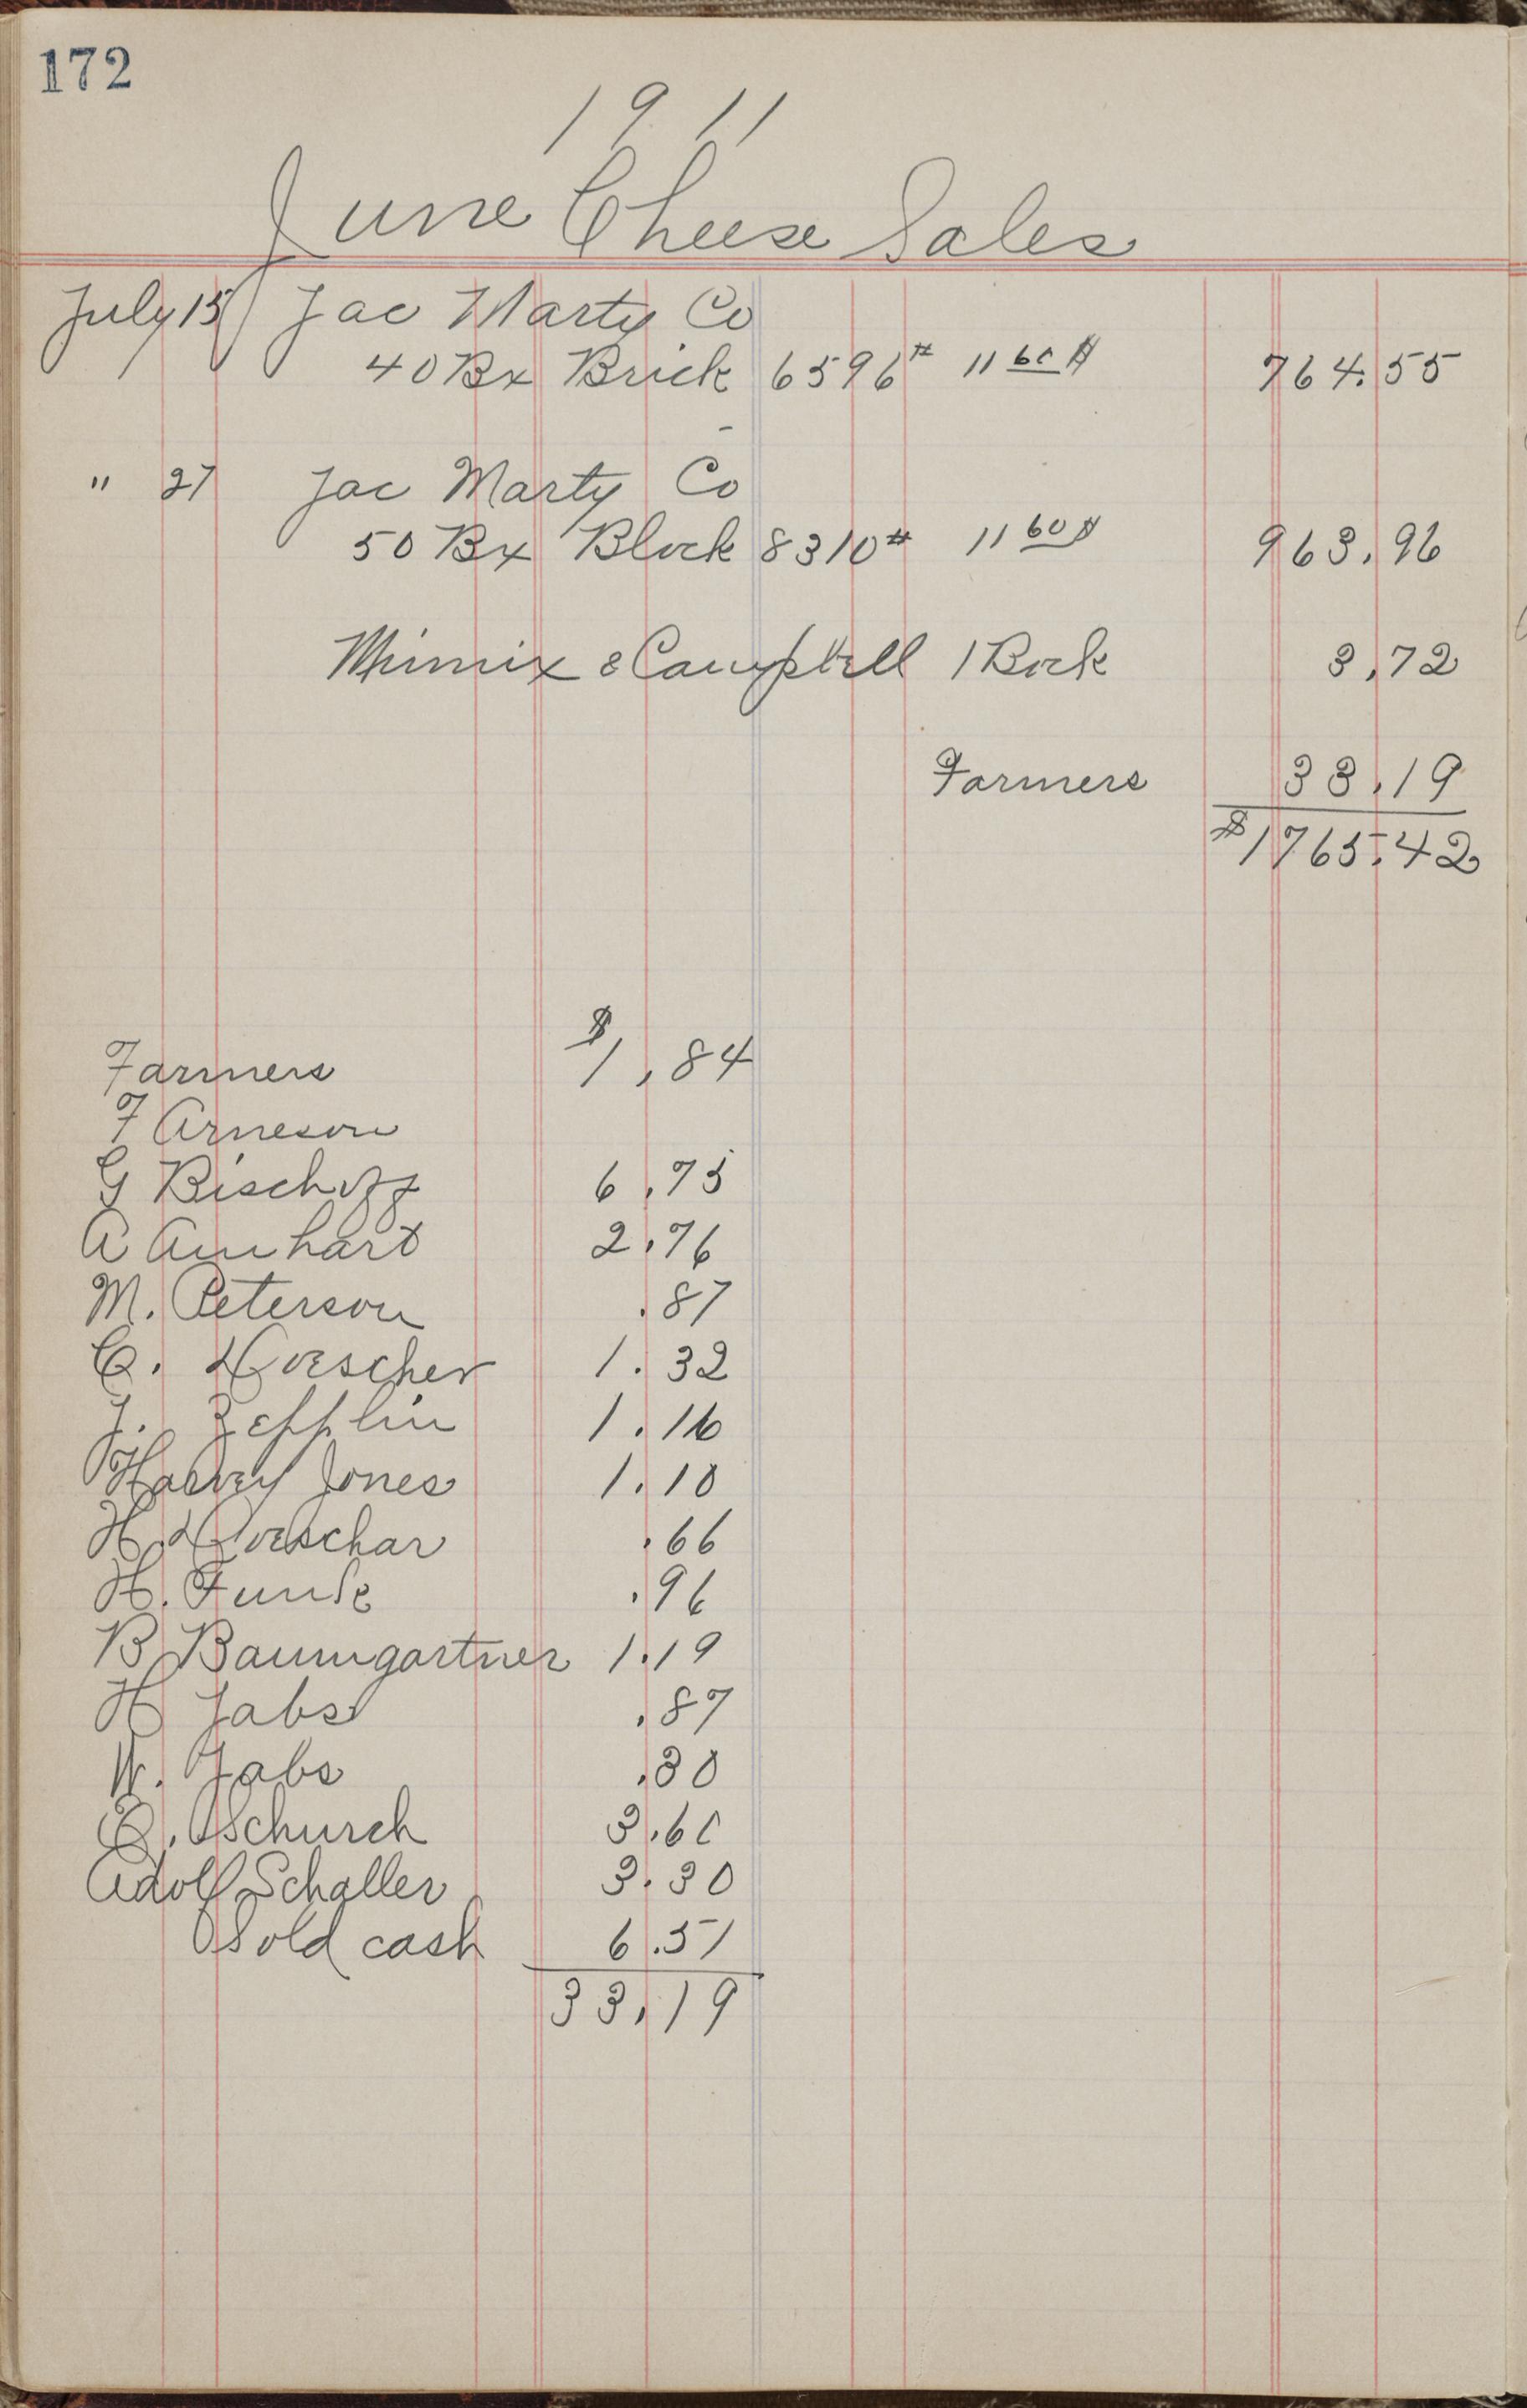 172
1911
June Cheese Sales
July 15 Jac Marty Co
40 Bx Brick 6596# 11 60 ¢ 764.55
" 27 Jac Marty Co
50 Bx Block 8310# 11 60 ¢ 963.96
& Campbell 1 3.72
Farmers 33.19
$1765.42
Farmers $1.84
F Arneson
G Bischoff 6.75
A Amhart 2.76
M. Peterson .87
C. 1.32
J. Zepplin 1.16
Harvey Jones 1.10
H .66
H. Funk .96
B Baumgartner 1.19
H Jabs .87
W. Jabs .30
E. Schurch 3.60
Adolf Schaller 3.30
Sold cash 6.51
33.19